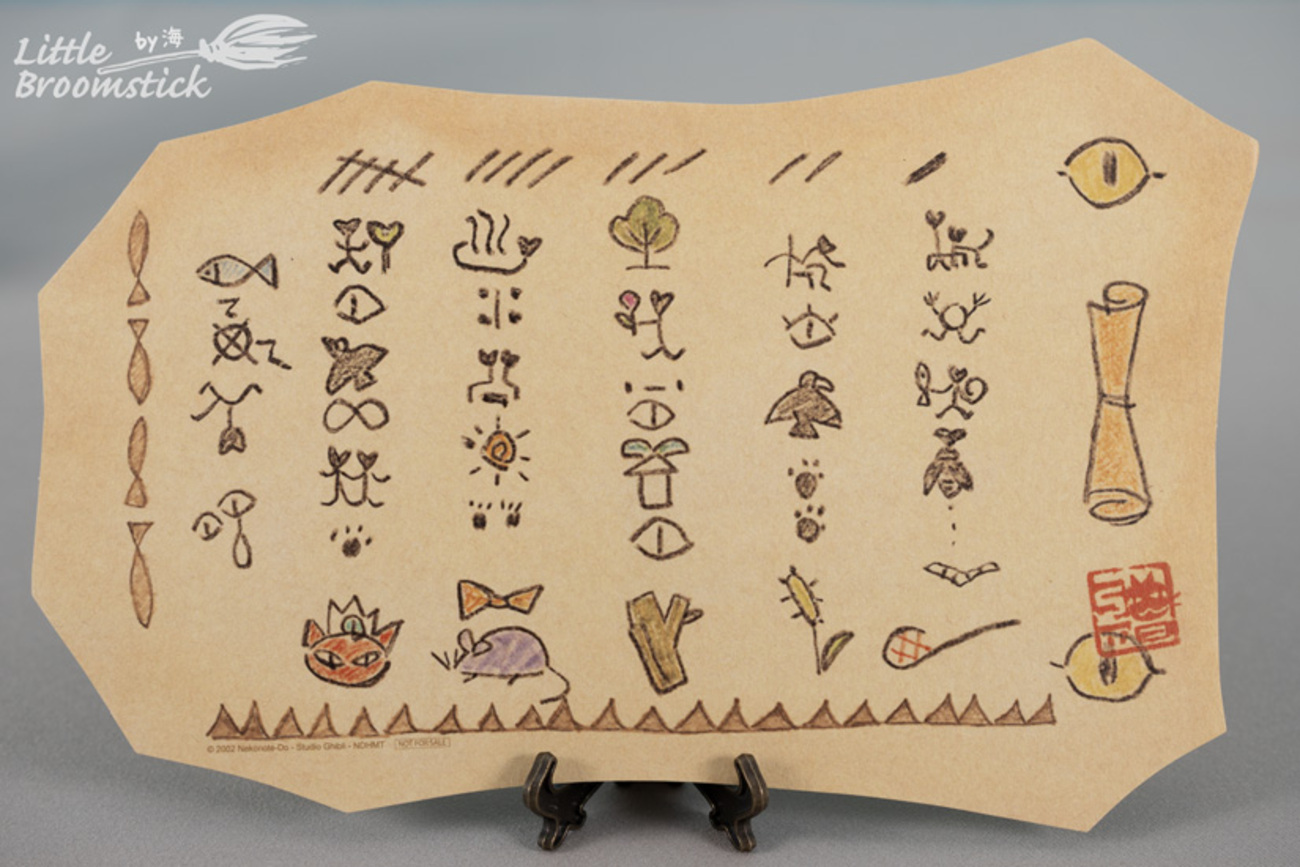 Little by海
Broomstick
© 2002 Nekonote-Do - Studio Ghibli - NDHMT NOT FOR SALE